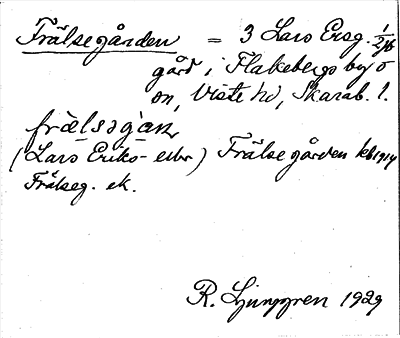 Frälsegården = 3 Lars Ersg. 1/2
gård i Flakebergs by o
sn, Viste hd, Skarab. l.
frælsəgàɳ
(Lars Eriks- eller) Frälsegården kb 1914
Frälseg. ek.
R. Ljunggren 1929